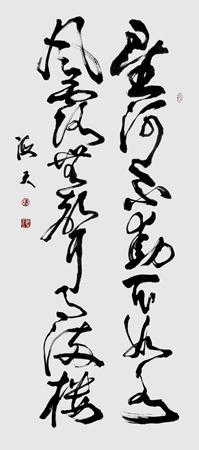 星河不動天如水
風露無聲月滿樓
天